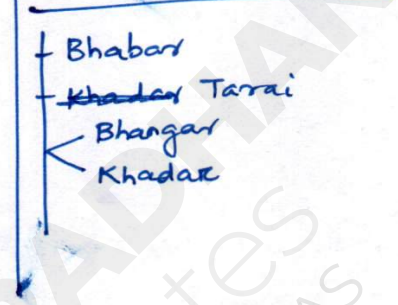 Bhabar
Khadar Tarai
Bhangar
Khadar